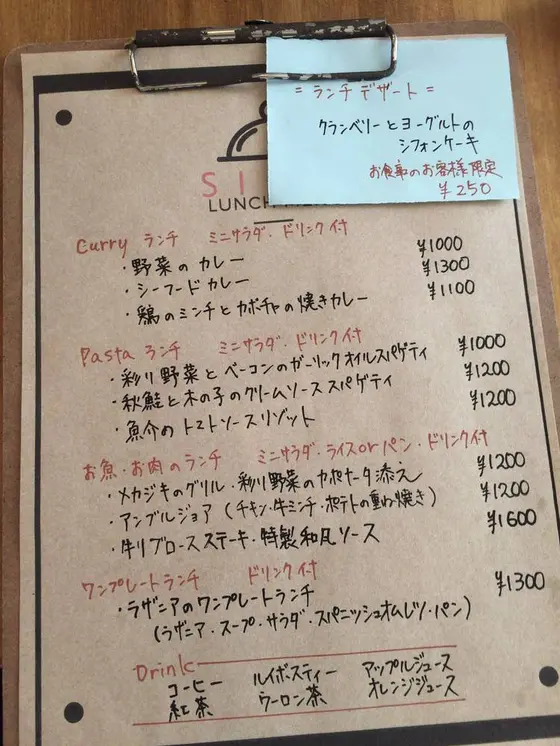 = ランチ デザート =
クランベリーとヨーグルトの
シフォンケーキ
お食事のお客様限定
¥250
LUNCH
Curry ランチ ミニサラダ・ドリンク付
・野菜の カレー ¥1000
・シーフード カレー ¥1300
・鶏のミンチとカボチャの焼きカレー ¥1100
Pasta ランチ ミニサラダ・ドリンク付
・彩り野菜とベーコンのガーリックオイルスパゲティ ¥1000
・秋鮭と木の子のクリームソーススパゲティ ¥1200
・魚介のトマトソースリゾット ¥1200
お魚・お肉のランチ ミニサラダ・ライスorパン・ドリンク付
・メカジキのグリル・彩り野菜のカポナータ添え ¥1200
・アンブルジョア(チキン・牛ミンチ・ポテトの重ね焼き) ¥1200
・牛リブロースステーキ・特製和風ソース ¥1600
ワンプレートランチ ドリンク付
・ラザニアのワンプレートランチ ¥1300
(ラザニア・スープ・サラダ・スパニッシュオムレツ・パン)
Drink
コーヒー ルイボスティー アップルジュース
紅茶 ウーロン茶 オレンジジュース